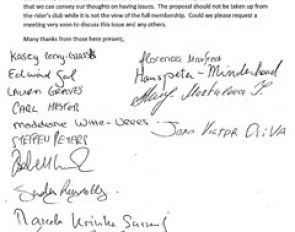 that we can convey our thoughts on having issues. The proposal should not be taken up from
the rider's club while it is not the view of the full membership. Could we please request a
meeting very soon to discuss this issue and any others.
Many thanks from those here present,
Kasey Perry-Glass
Florencia Manfredi
Edward Gal
Hanspeter - Minderhoud
LAURA GRAVES
Mary
CARL HESTER
Madeleine Witte-Vrees
JOAO VICTOR OLIVA
STEFFEN PETERS
Marcela Krinke Susmelj